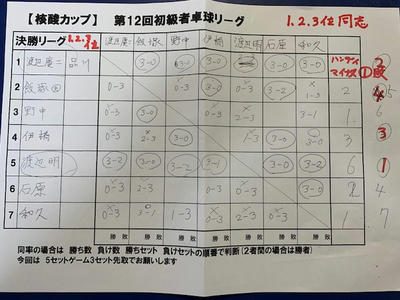 【核酸カップ】 第12回初級者卓球リーグ 1.2.3位同志
決勝リーグ 1.2.3位 渡辺広二 飯塚 野中 伊橋 渡辺明 石原 和久 ハンディ マイナス
1 渡辺広二 品川 3-0 3-0 3-0 3-0 3-0 1 2
2 飯塚 0-3 0-3 3-2 2-3 3-2 1-3 2
3 野中 0-3 3-0 0-3 2-3 3-0 3-1 1 6
4 伊橋 0-3 2-3 3-0 1-3 3-0 3-0 3 3
5 渡辺明 3-2 3-0 3-2 3-1 3-0 3-2 6 1
6 石原 0-3 2-3 0-3 0-3 0-3 3-0 2 4
7 和久 0-3 3-1 1-3 0-3 2-3 0-3 1 7
勝 敗 勝 敗 勝 敗 勝 敗 勝 敗 勝 敗 勝 敗
同率の場合は 勝ち数 負け数 勝ちセット 負けセットの順番で判断(2者間の場合は勝者)
今回は 5セットゲーム3セット先取でお願いします